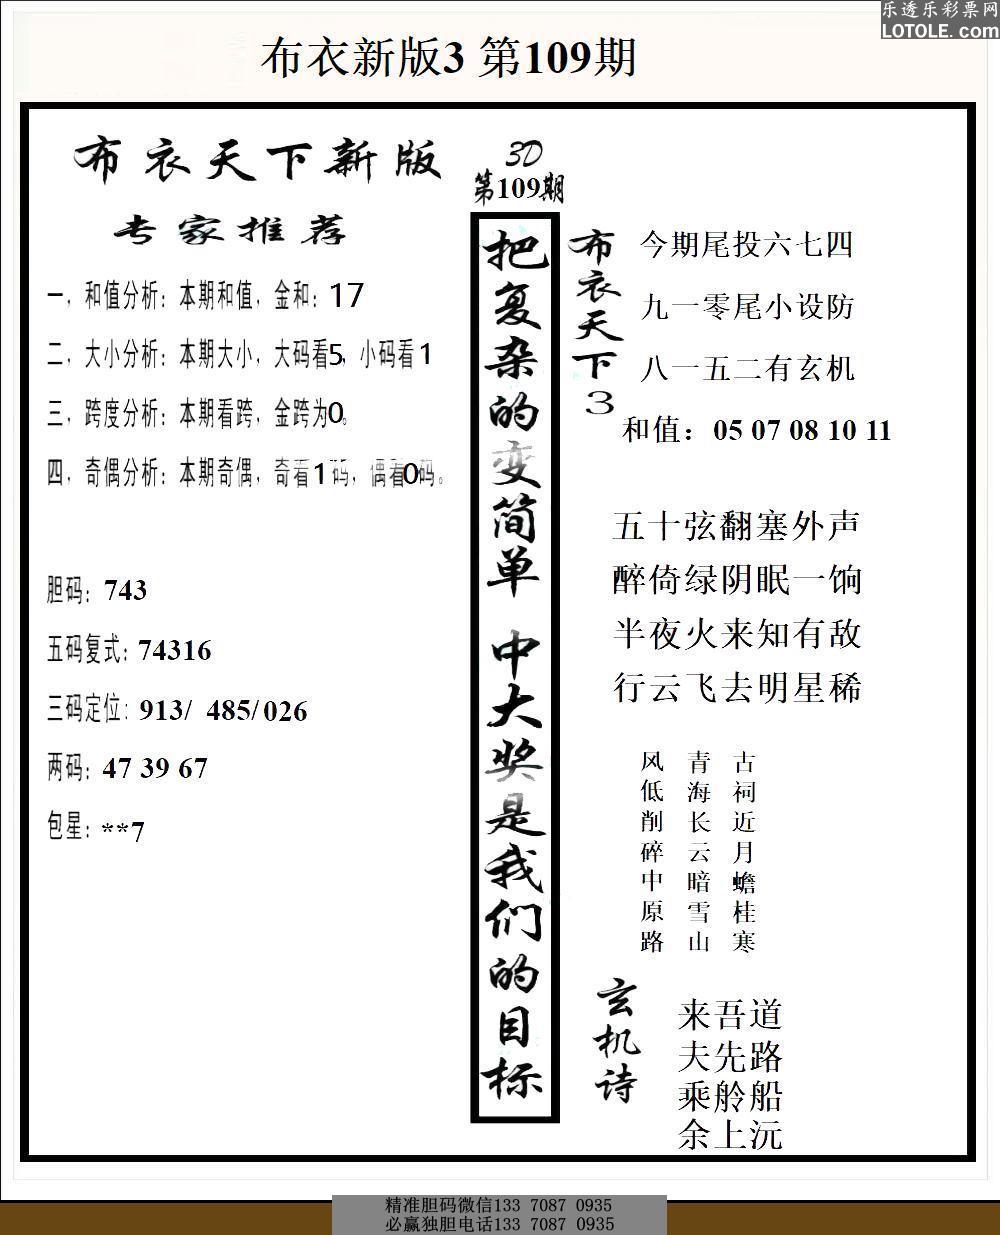 乐透乐彩票网
LOTOLE.com
布衣新版3 第109期
布衣天下新版
专家推荐
一，和值分析：本期和值，金和：17
二，大小分析：本期大小，大码看5，小码看1
三，跨度分析：本期看跨，金跨为0。
四，奇偶分析：本期奇偶，奇看1码，偶看0码。
胆码：743
五码复式：74316
三码定位：913/ 485/026
两码：47 39 67
包星：**7
3D
第109期
把复杂的变简单 中大奖是我们的目标
布衣天下3
今期尾投六七四
九一零尾小设防
八一五二有玄机
和值：05 07 08 10 11
五十弦翻塞外声
醉倚绿阴眠一饷
半夜火来知有敌
行云飞去明星稀
古祠近月蟾桂寒
青海长云暗雪山
风低削碎中原路
玄机诗
来吾道
夫先路
乘舲船
余上沅
精准胆码微信133 7087 0935
必赢独胆电话133 7087 0935